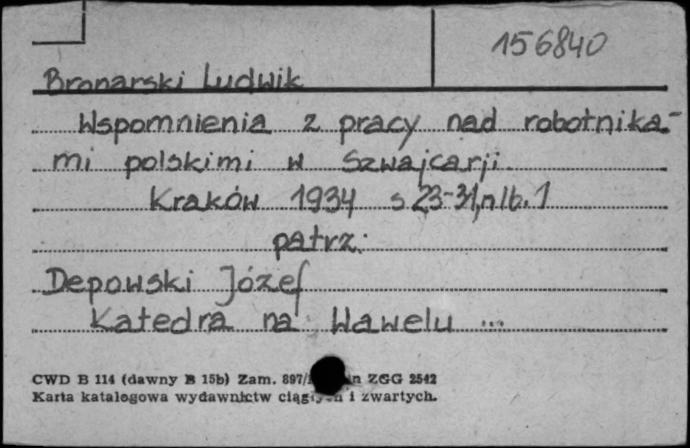 156840
Bronarski Ludwik
Wspomnienia z pracy nad robotnika-
mi polskimi w Szwajcarji.
Kraków 1934 s 23-31, nlb. 1
patrz:
Depowski Józef
Katedra na Wawelu ...
CWD B 114 (dawny B 15b) Zam. 897/ ZGG 2542
Karta katalogowa wydawnictw i zwartych.